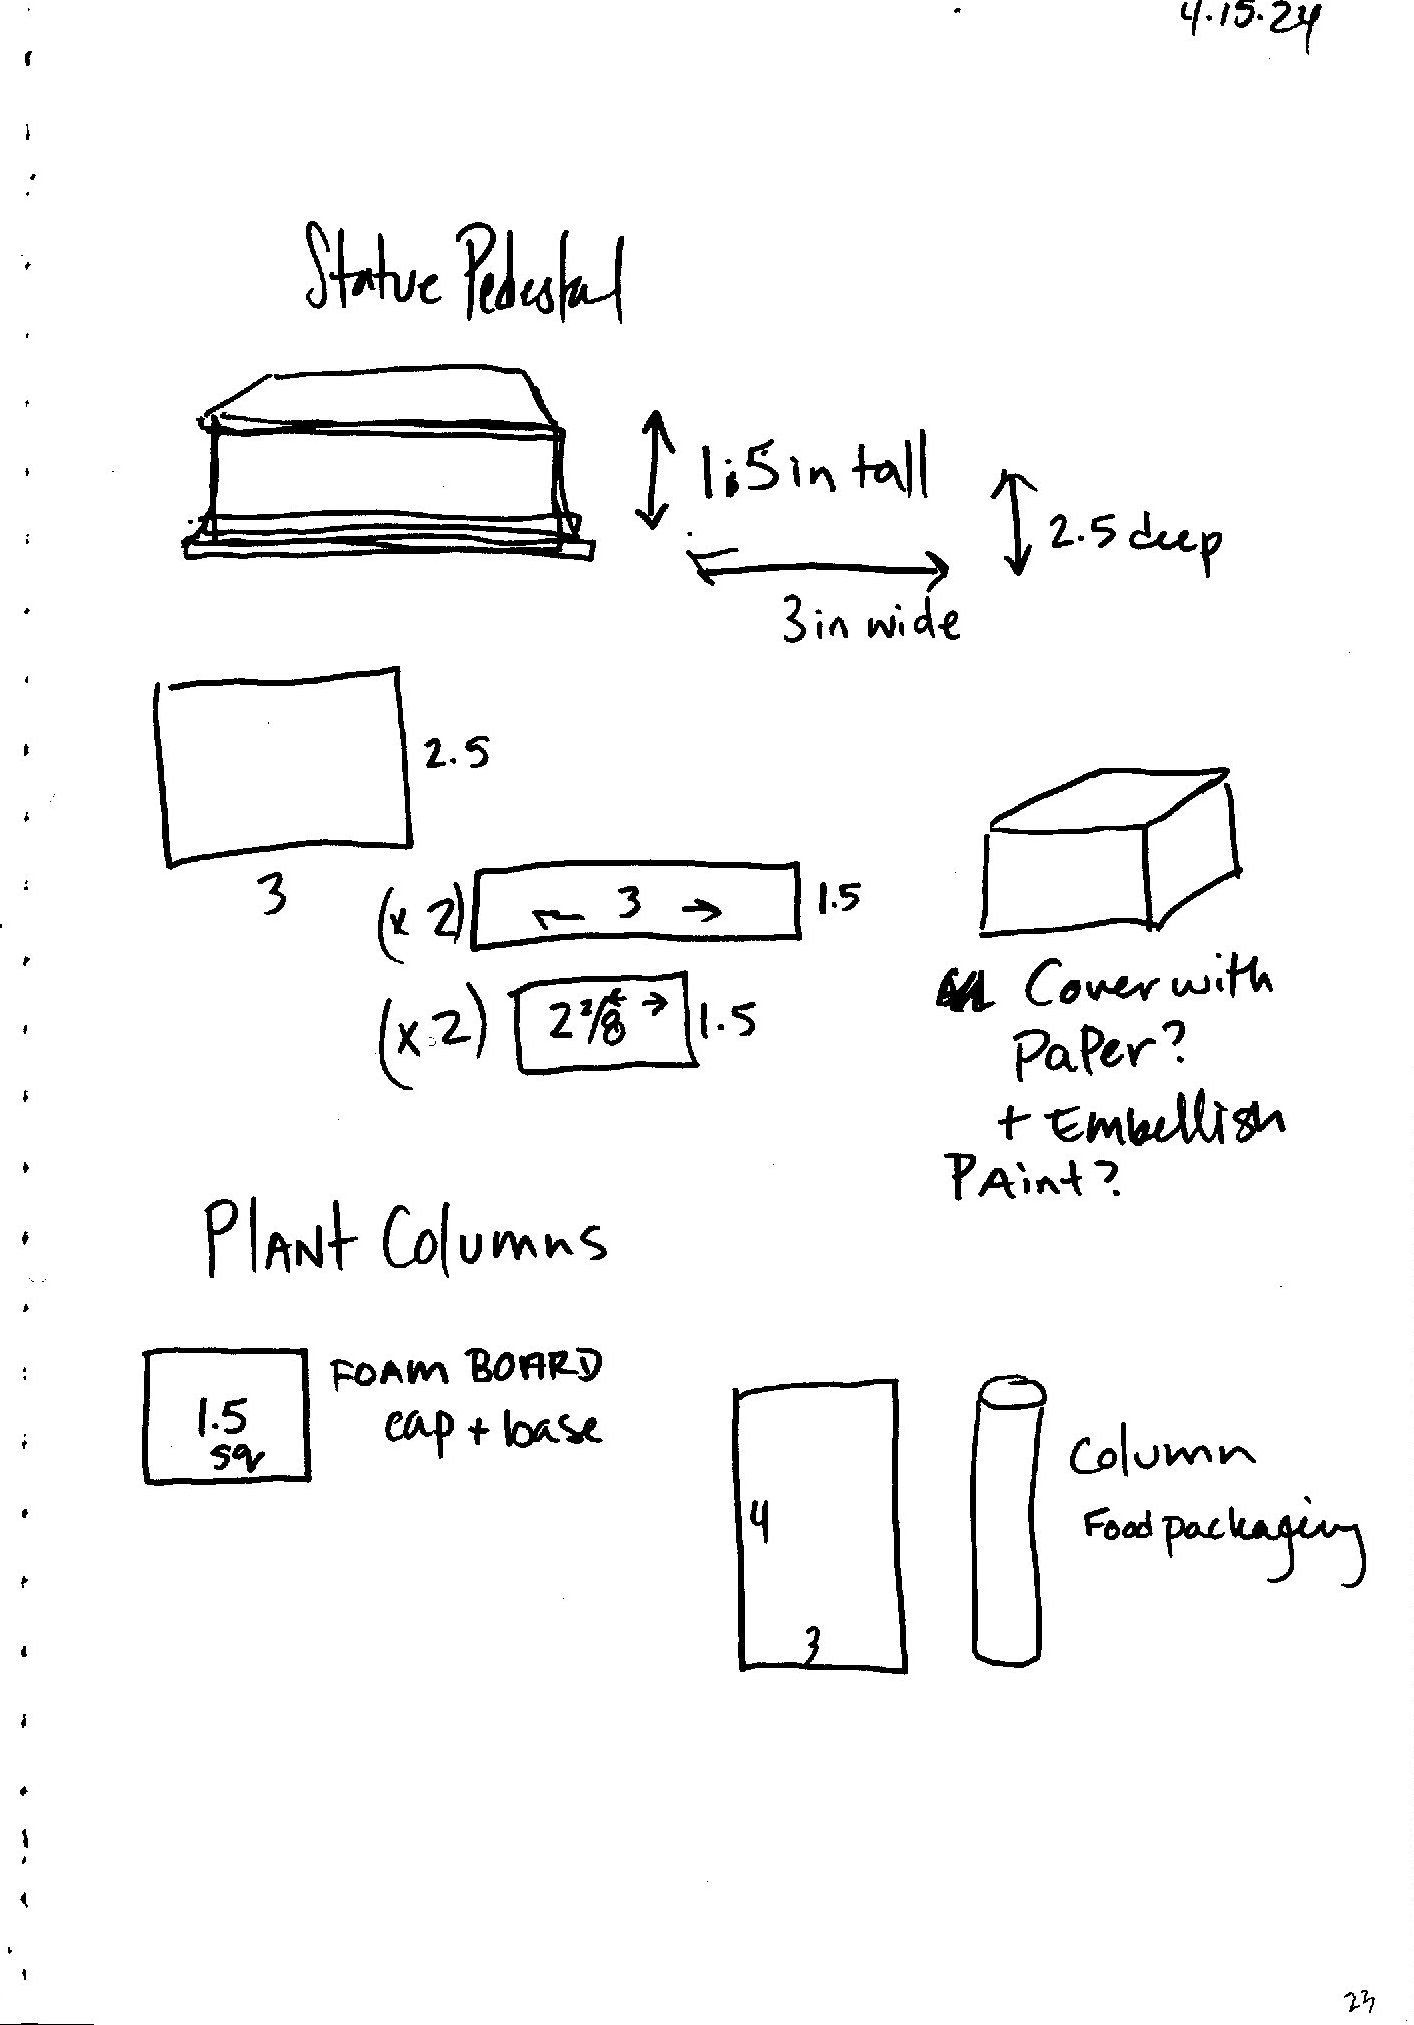 4.15.24
Statue Pedestal
1.5 in tall
2.5 deep
3 in wide
2.5
3
(x 2) 3 1.5
(x 2) 2 2/8 1.5
Cover with
Paper?
+ Embellish
Paint?
Plant Columns
1.5
sq
Foam Board
cap + base
4
3
Column
Food packaging
23